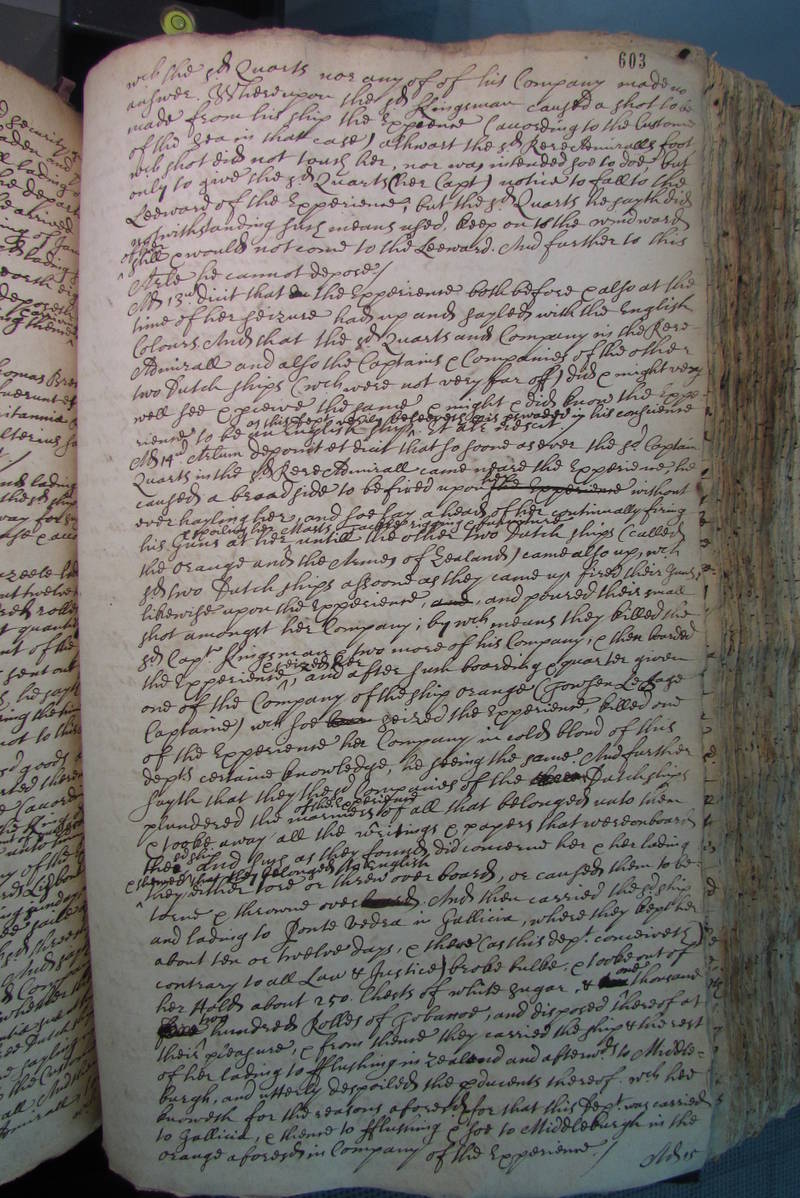 603
wch the sd Quarts nor any of of his Company made no
answer. Whereupon the sd Kingsman caused a shot to be
made from his ship the Experience (according to the Custome
of the Sea in that case) athwart the sd Rere Admiralls foot
wch shot did not touch her, nor was intended soe to doe, but
only to give the sd Quarts (her Capt) notice to fall to the
Leeward of the Experience, but the sd Quarts he sayth did
notwithstanding such means used, keep on to the windward
still & would not come to the Leeward. And further to this
Arle he cannot depose./
Ad 13um dicit that the Experience both before & also at the
time of her seizure had up and sayled with the English
Colours And that the sd Quarts and Company in the Rere
Admirall and also the Captains & Companies of the other
two Dutch ships (wch were not very far off) did & might very
well see & viewe the same & might & did know the Expe-
rience to be an English ship,
as this dept verily beleeveth & is perswaded in his conscience
Ad 14um Arlum deponit et dicit that so soone as ever the sd Captain
Quarts in the sd Rere Admirall came neare the Experience, he
caused a broad side to be fired upon her the Experience without
ever hayling her, and soe lay a head of her continually firing
his Guns at her untill the other two Dutch ships (called
the Orange and the Armes of Zealand) came also up, wch
sd two Dutch ships assoone as they came up fired their Guns
likewise upon the Experience, and, and poured their small
shot amongst her Company; by wch means they killed the
sd Capt Kingsman & two more of his Company, & then boarded
& seized her
the Experience, and after such boarding & quarter given
one of the Company of the ship Orange
Captaine) wch soe seized the Experience, killed one
of the Experience her Company in cold blood of this
depts certaine knowledge, he seeing the same. And further
sayth that they the sd Companies of the Dutch ships
of the Experience
plundered the mariners of all that belonged unto them
& tooke away all the writings & papers that were on board
the sd ship And such as they found did concerne her & her lading
& shewed that they belonged to English
they either tore or threw over board, or caused them to be
torne & throwne over board. And then carried the sd ship
and lading to Ponte Vedra in Gallicia, where they kept her
about ten or twelve days, & there (as this dept conceiveth
contrary to all Law & Justice) broke bulke, & tooke out of
her Hold about 250. Chests of white sugar, & one thousand
two hundred Rolles of Tobaccoe, and disposed thereof at
their pleasure, & from thence they carried the ship & the rest
of her lading to fflushing in Zealand and afterwds to Middle-
burgh, and utterly despoiled the pducents thereof. wch hee
knoweth for the reasons aforesd, for that this Dept was carried
to Gallicia, & thence to fflushing & soe to Middleburgh in the
Orange aforesd in Company of the Experience./
Ad 15